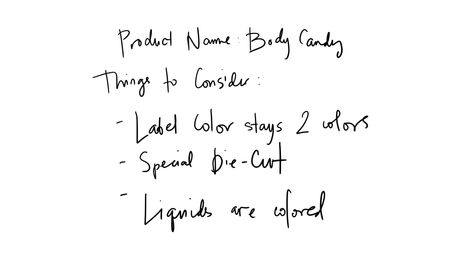 Product Name: Body Candy
Things to Consider:
- Label Color stays 2 colors
- Special Die-Cut
- Liquids are colored